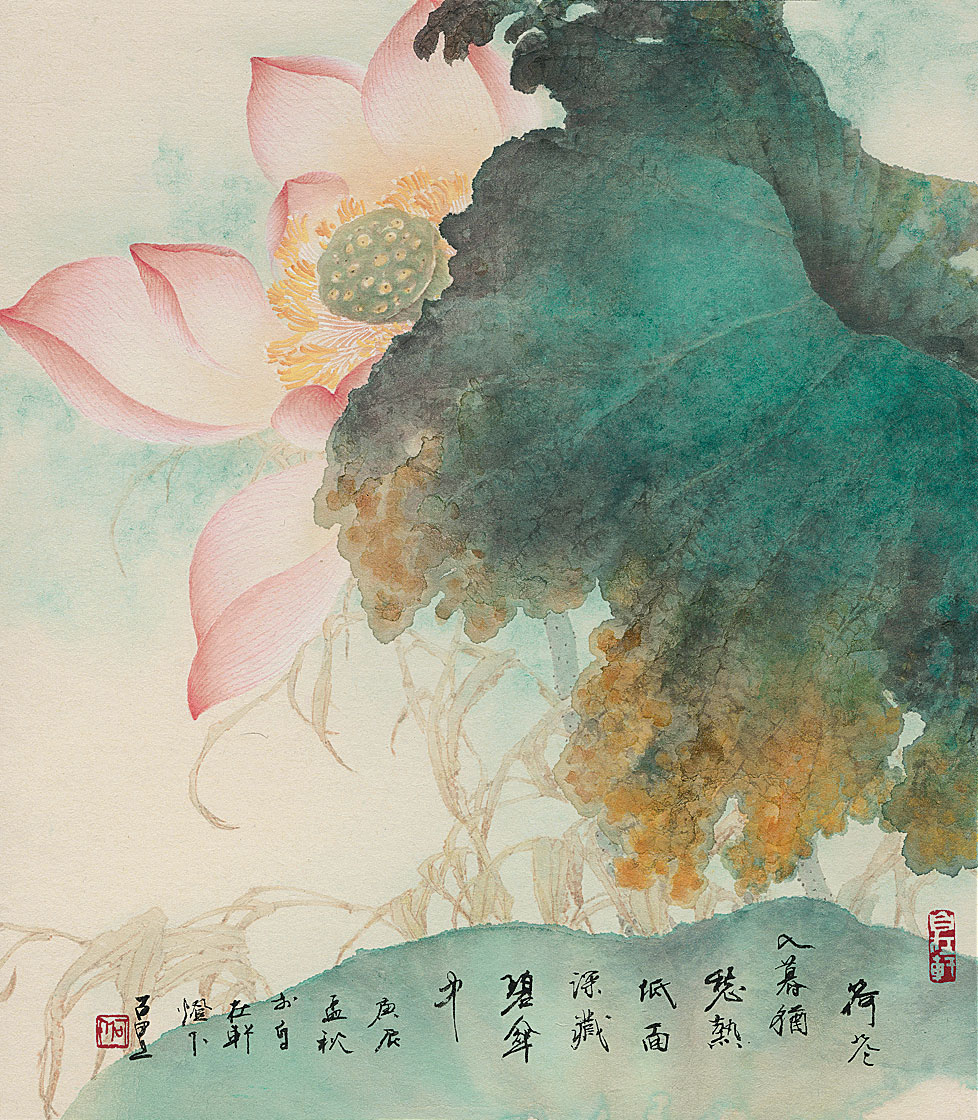 自在軒
荷花
入暮猶
愁熱
低面
深藏
碧傘
中
庚辰
孟秋
於自
在軒
燈下